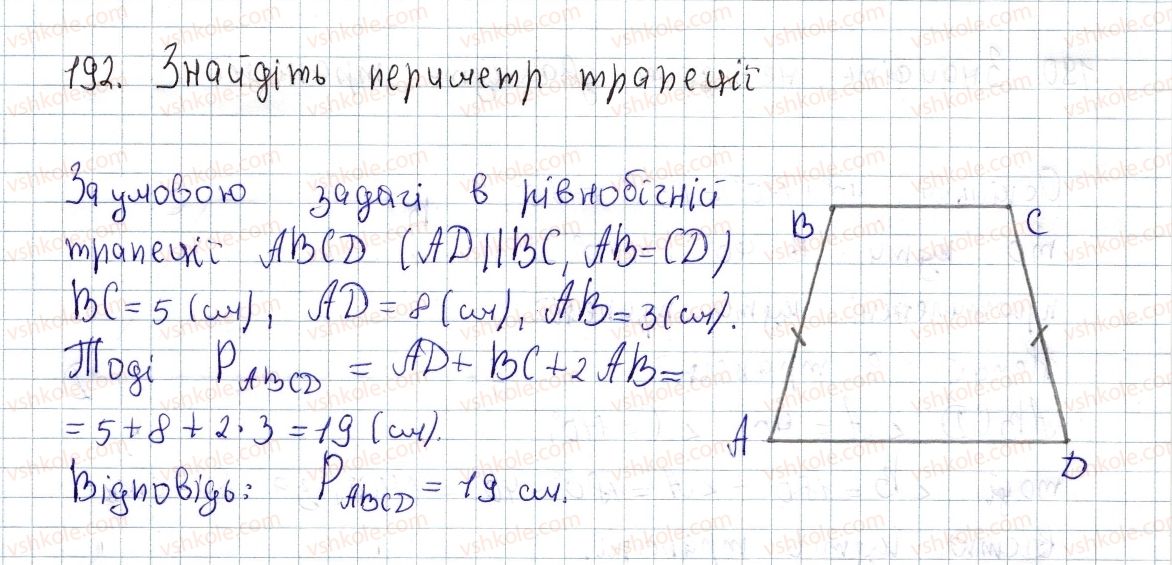 192. Знайдіть периметр трапеції
За умовою задачі в рівнобічній
трапеції ABCD (AD||BC, AB=CD)
BC = 5 (см), AD = 8 (см), AB = 3 (см).
Тоді P ABCD = AD + BC + 2 AB =
= 5 + 8 + 2 · 3 = 19 (см).
Відповідь: P ABCD = 19 см.
B
C
A
D
vshkole.com